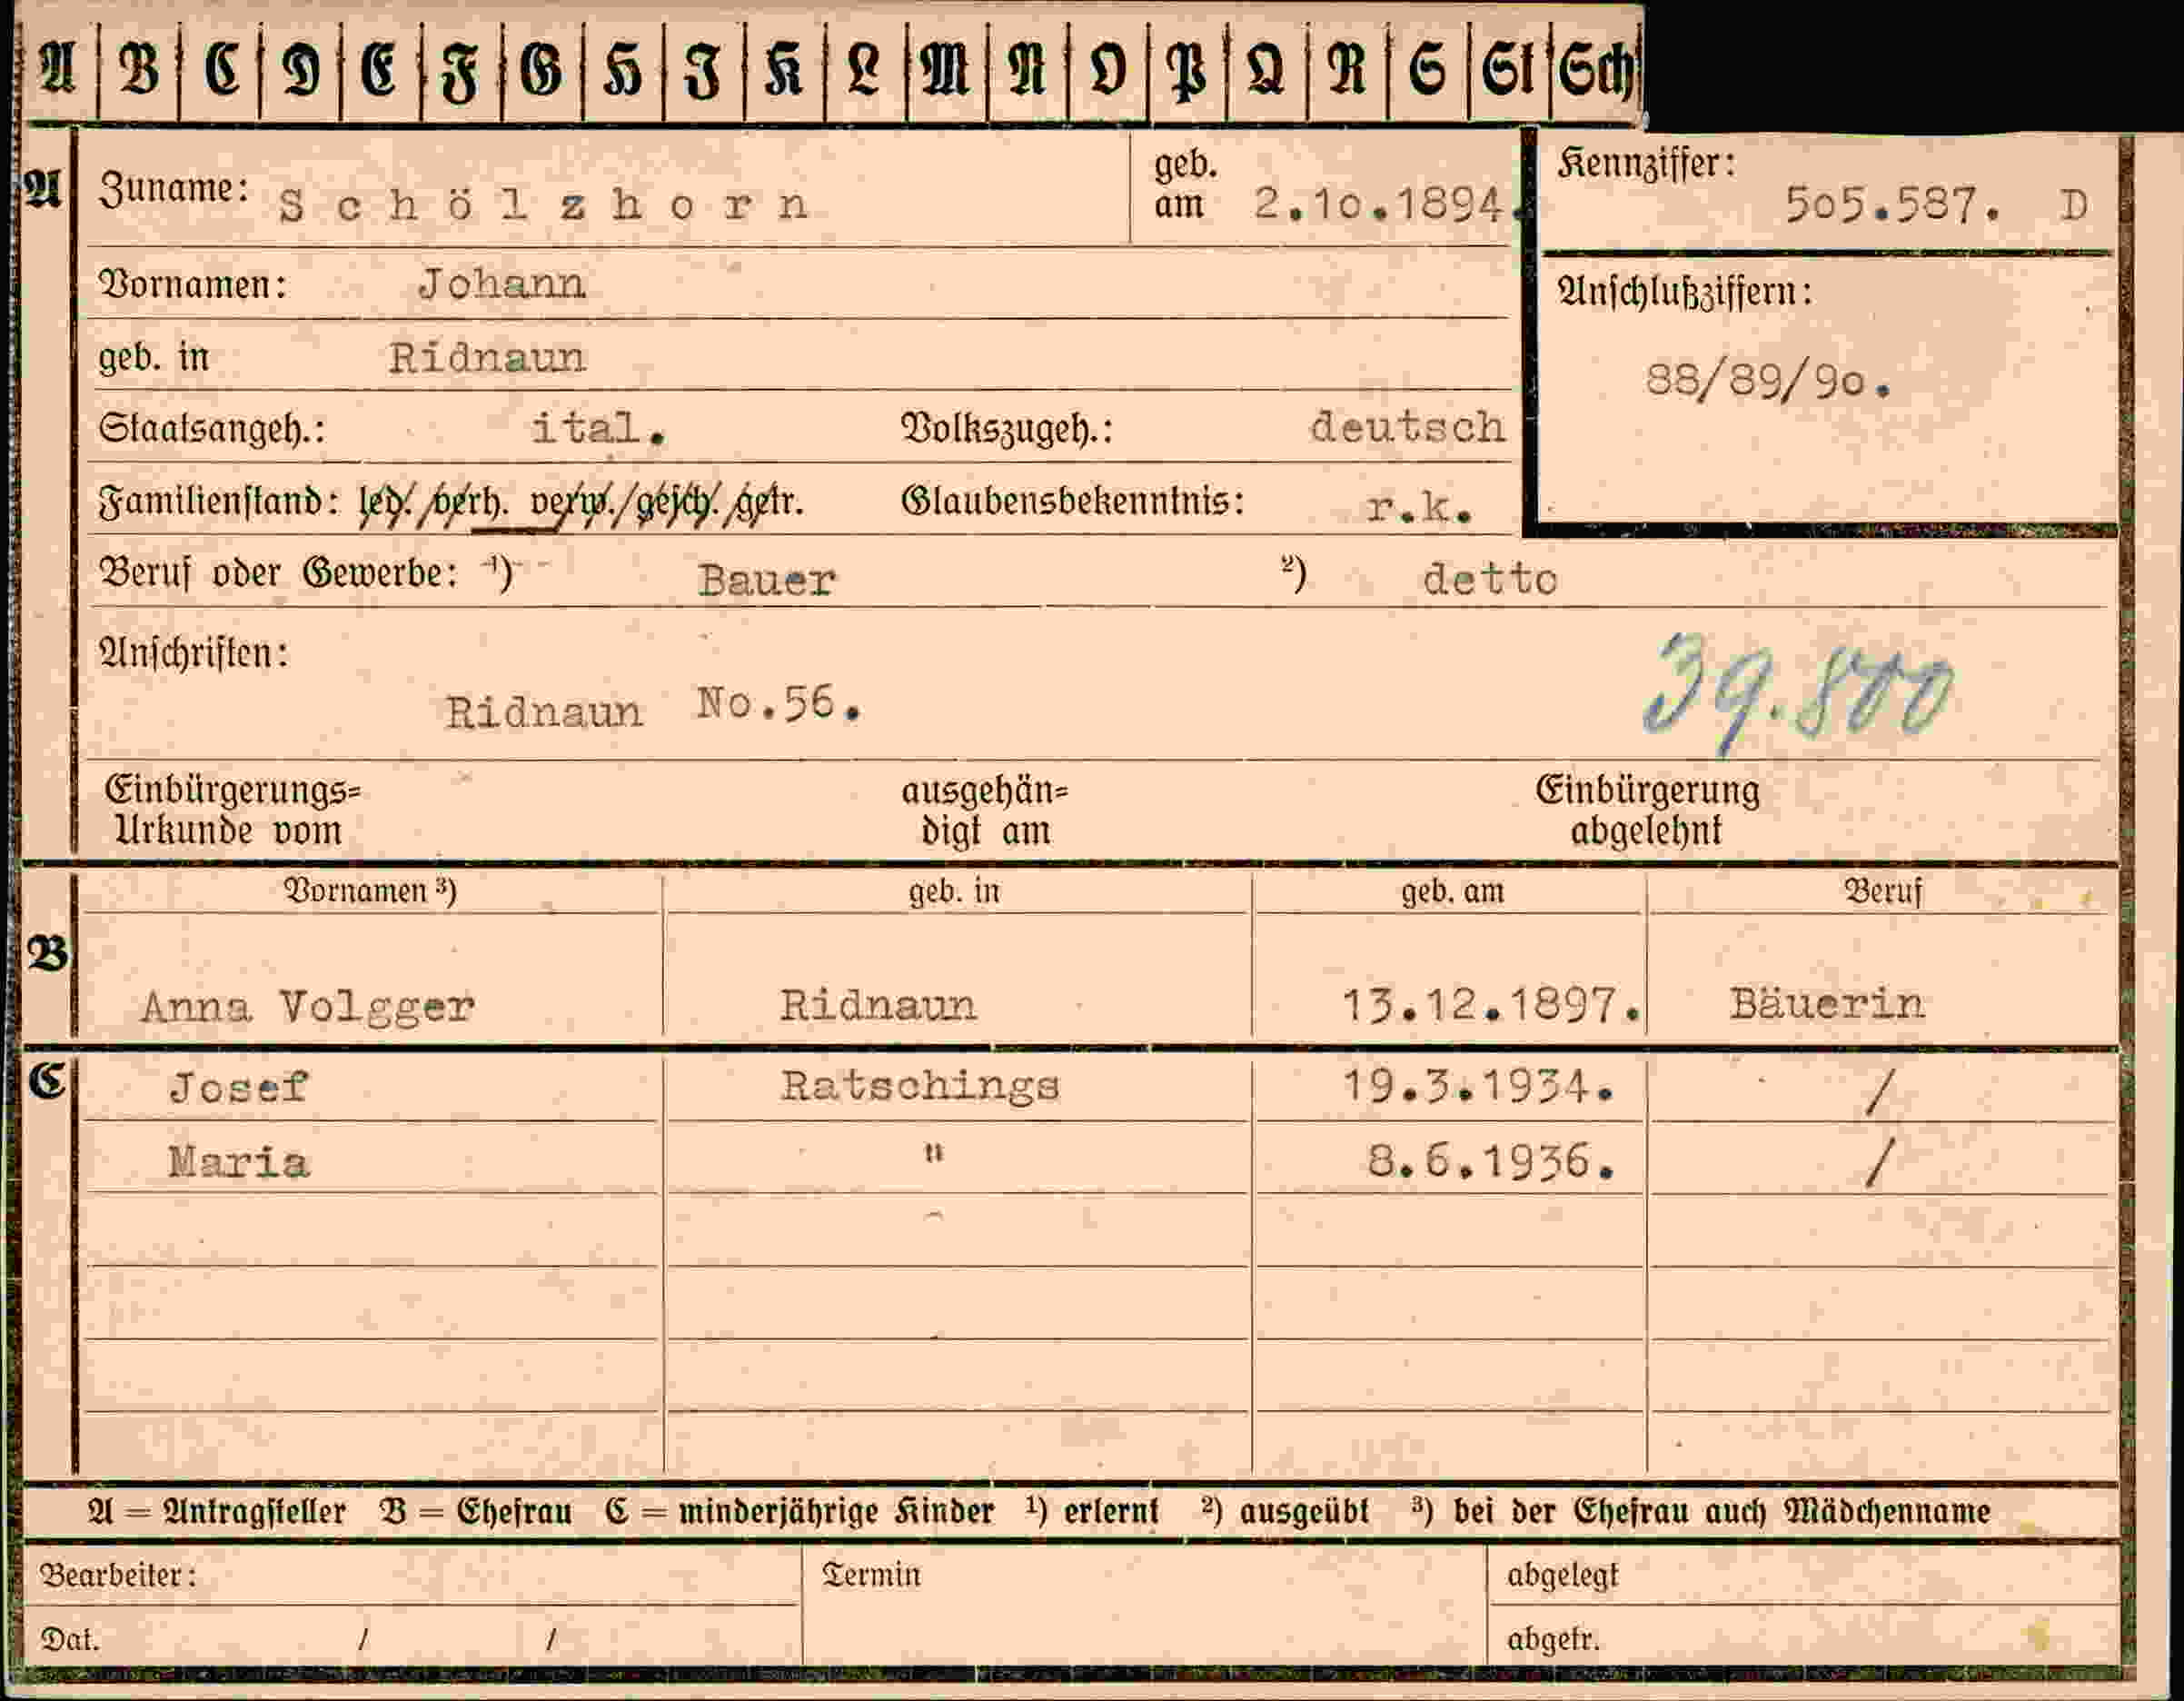 A B C D E F G H J K L M N O P Q R S St Sch
A Zuname: Schölzhorn geb. am 2.10.1894. Kennziffer: 505.587. D
Vornamen: Johann Anschlußziffern:
geb. in Ridnaun 88/89/90.
Staatsangeh.: ital. Volkszugeh.: deutsch
Familienstand: led./verh. verw./gesch./getr. Glaubensbekenntnis: r.k.
Beruf oder Gewerbe: ¹) Bauer ²) detto
Anschriften:
Ridnaun No.56. 39.800
Einbürgerungs= ausgehän= Einbürgerung
Urkunde vom digt am abgelehnt
Vornamen ³) geb. in geb. am Beruf
B
Anna Volgger Ridnaun 13.12.1897. Bäuerin
C Josef Ratschings 19.3.1934. /
Maria " 8.6.1936. /
A = Antragsteller B = Ehefrau C = minderjährige Kinder ¹) erlernt ²) ausgeübt ³) bei der Ehefrau auch Mädchenname
Bearbeiter: Termin abgelegt
Dat. / / abgetr.